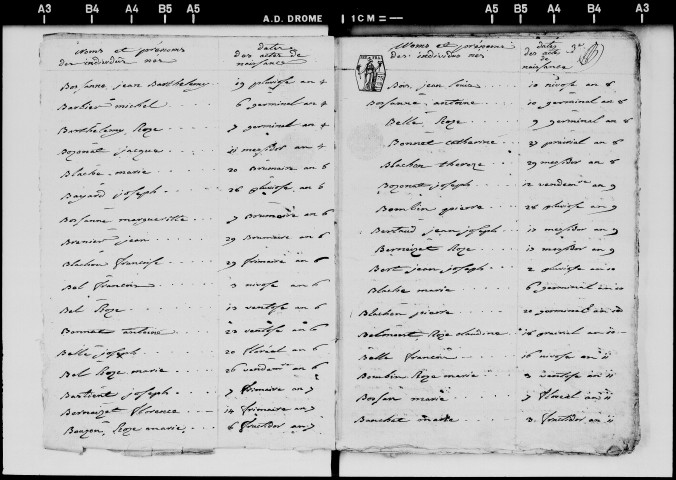 A3 B4 A4 B5 A5 A.D. DROME 1CM= A5 B5 A4 B4 A3
Noms et prénoms
des individus nés
dates
des actes de
naissance
Bossanne jean Barthelemy 19 pluviose an 4
Barbier michel 6 germinal an 4
Barthelemy Roze 7 germinal an 4
Bozonat jacque 11 messidor an 4
Blache marie 20 Brumaire an 6
Bayard joseph 26 pluviose an 6
Bossanne marguerite 7 Brumaire an 6
Brenier jean 29 Brumaire an 6
Blachon francoise 29 frimaire an 6
Bel francois 3 nivose an 6
Bel Roze 13 ventose an 6
Bonnet antoine 22 ventose an 6
Belle joseph 20 floréal an 6
Bel Roze marie 26 vendem an 6
Bastient joseph 7 frimaire an 7
Bernaizet florence 14 frimaire an 7
Bouzon Roze marie 6 fructidor an 7
Noms et prénoms
des individus nés
dates
des actes
de
naissance
3e
Bos jean louis 10 nivose an 8
Bossanne antoine 10 germinal an 8
Belle Roze 9 germinal an 8
Bonnet catherine 27 prairial an 8
Blachon thereze 29 messidor an 8
Bozonat joseph 12 vendemre an 9
Bomlin pierre 28 pluviose an 9
Bertrand jean joseph 17 messidor an 9
Bernaizet Roze 13 messidor an 9
Bert jean joseph 2 pluviose an 10
Blache marie 6 germinal an 10
Blachon pierre 20 germinal an 10
Belmont Roze claudine 16 prairial an 10
Belle francois 16 nivose an 11
Boulin Roze marie 3 ventose an 11
Bossan marie 7 floréal an 11
Banchet marie 3 fructidor an 11